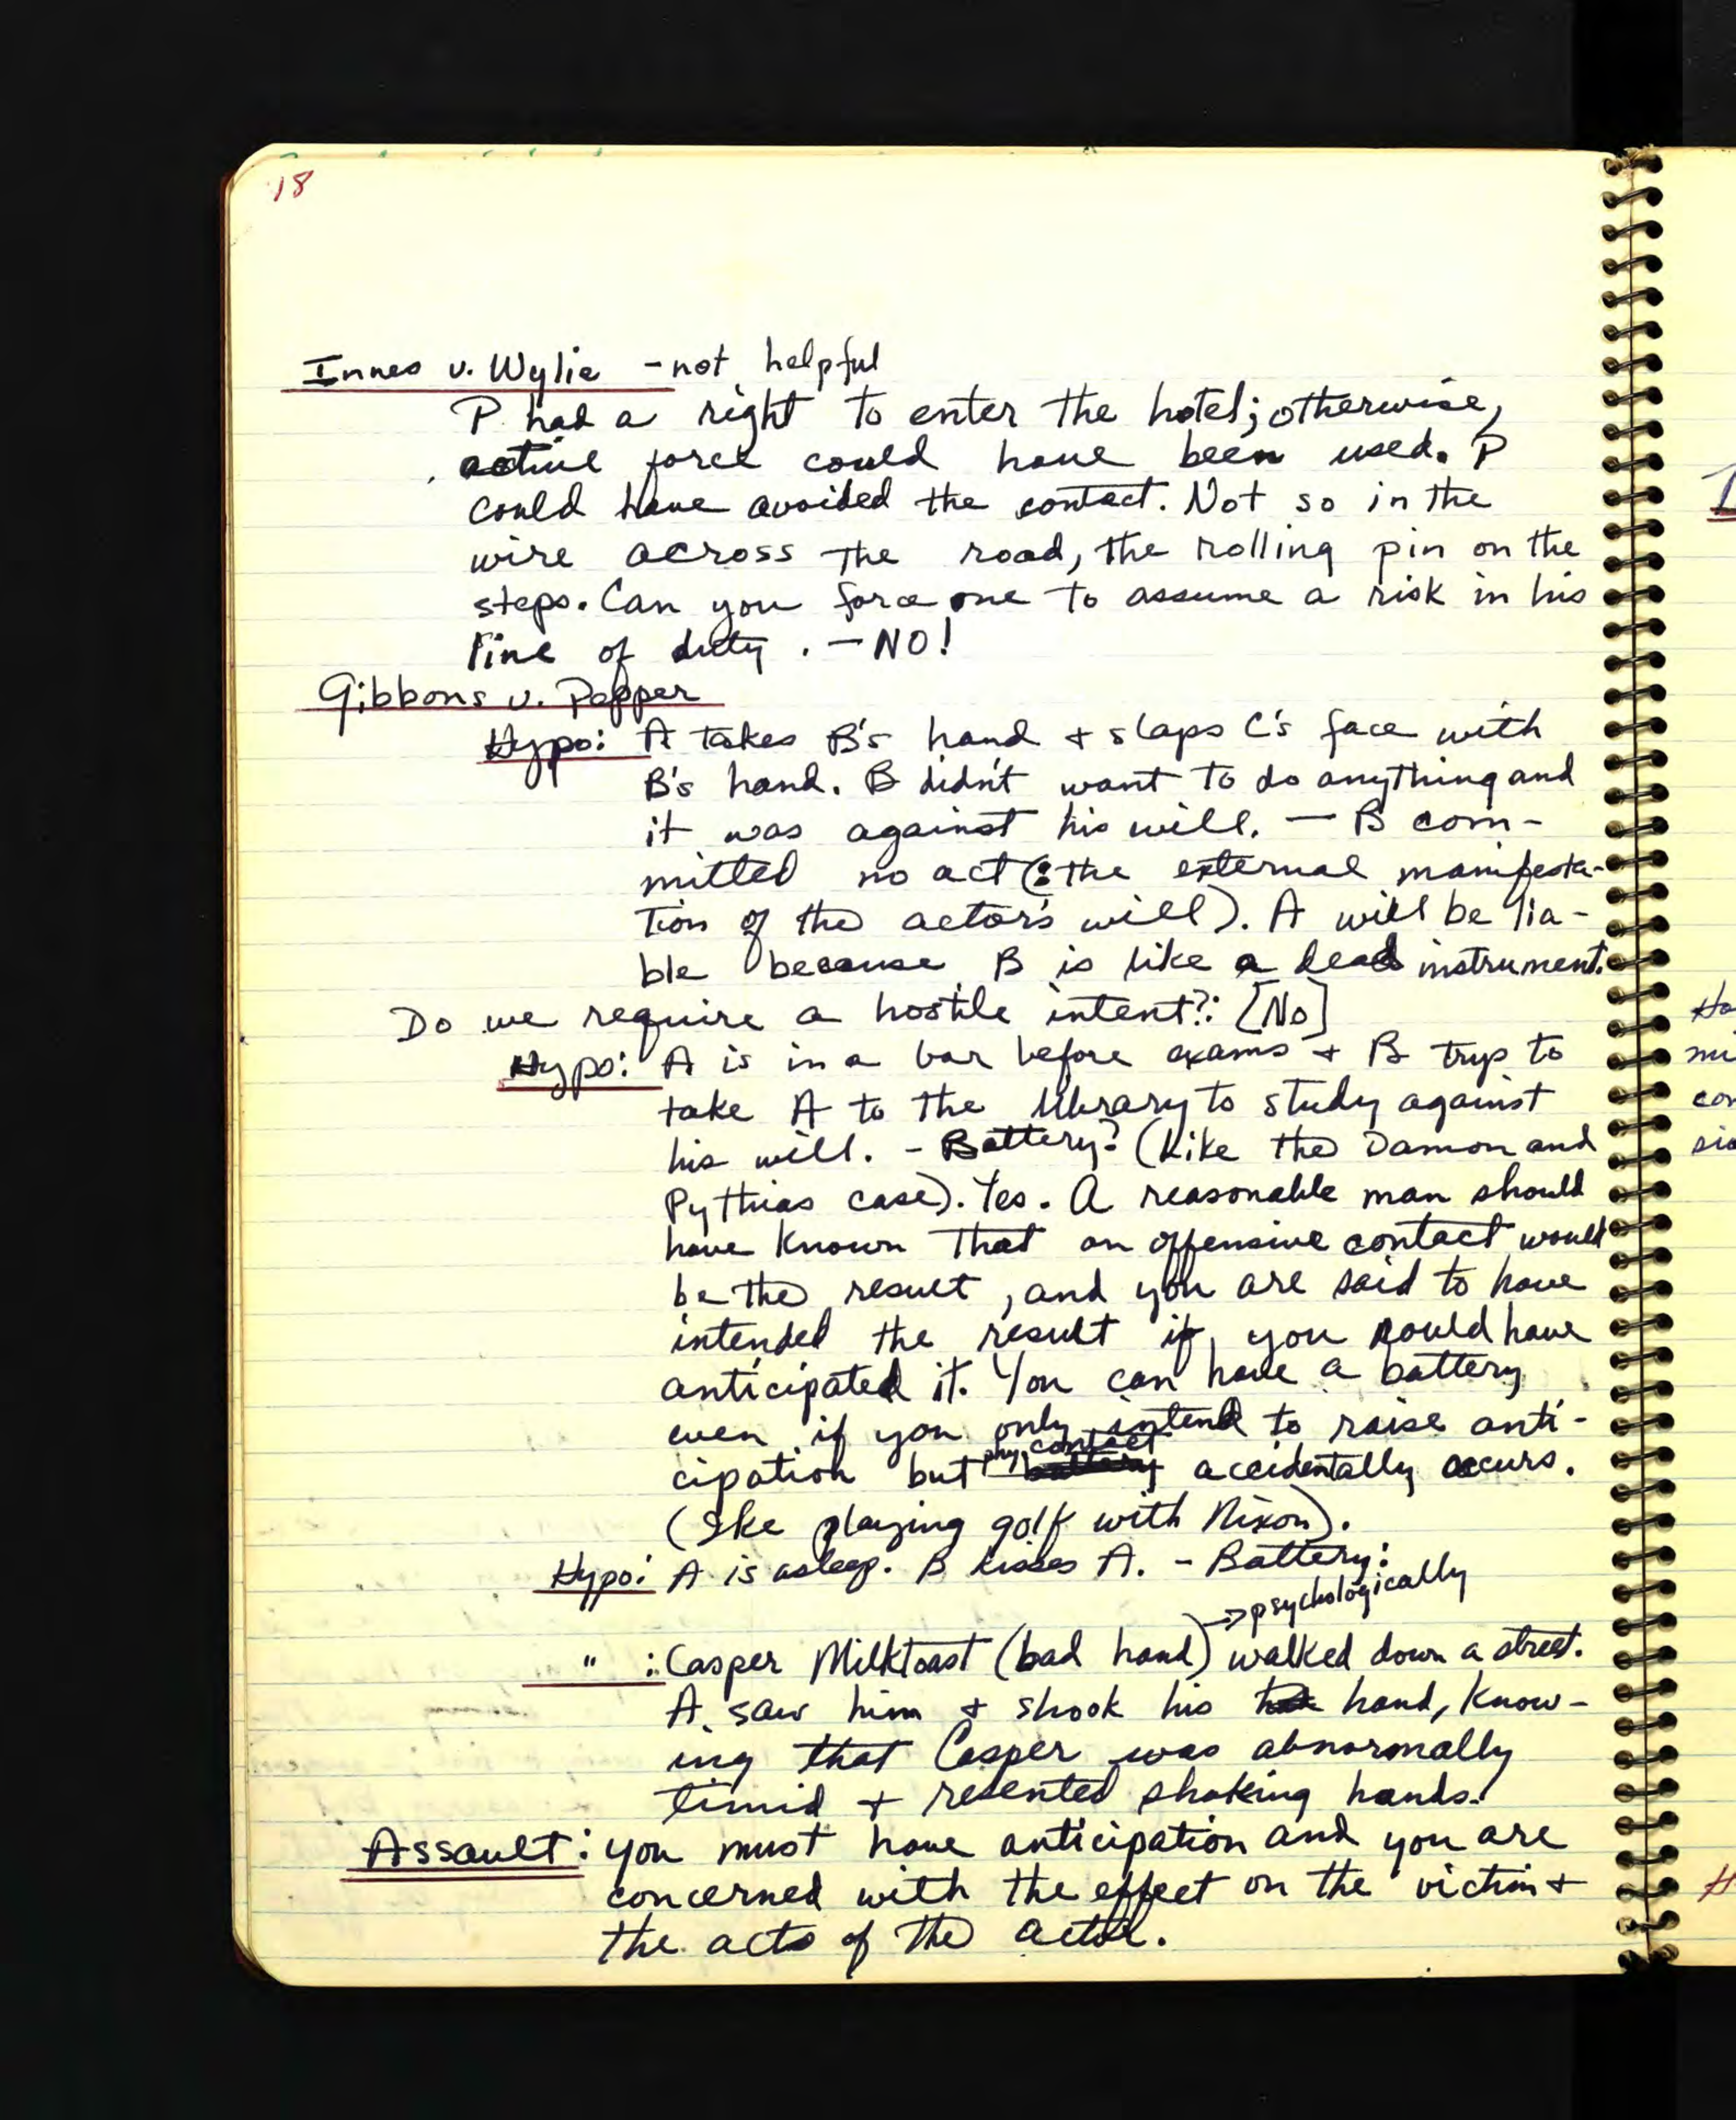 18
Innes v. Wylie - not helpful
P had a right to enter the hotel; otherwise,
active force could have been used. P
could have avoided the contact. Not so in the
wire across the road, the rolling pin on the
steps. Can you force one to assume a risk in his
line of duty. - NO!
Gibbons v. Pepper
Hypo: A takes B's hand + slaps C's face with
B's hand. B didn't want to do anything and
it was against his will. - B com-
mitted no act (: the external manifesta-
tion of the actor's will). A will be lia-
ble because B is like a dead instrument.
Do we require a hostile intent?: [No]
Hypo: A is in a bar before exams + B trys to
take A to the library to study against
his will. - Battery? (Like the Damon and
Pythias case). Yes. A reasonable man should
have known that an offensive contact would
be the result, and you are said to have
intended the result if you could have
anticipated it. You can have a battery
even if you only intend to raise anti-
cipation but phy. contact accidentally occurs.
(Ike playing golf with Nixon).
Hypo: A is asleep. B kisses A. - Battery:
→ psychologically
" : Casper Milktoast (bad hand) walked down a street.
A saw him + shook his hand, know-
ing that Casper was abnormally
timid + resented shaking hands.
Assault: you must have anticipation and you are
concerned with the effect on the victim +
the acts of the actor.
Ha
mi
con
sio
H